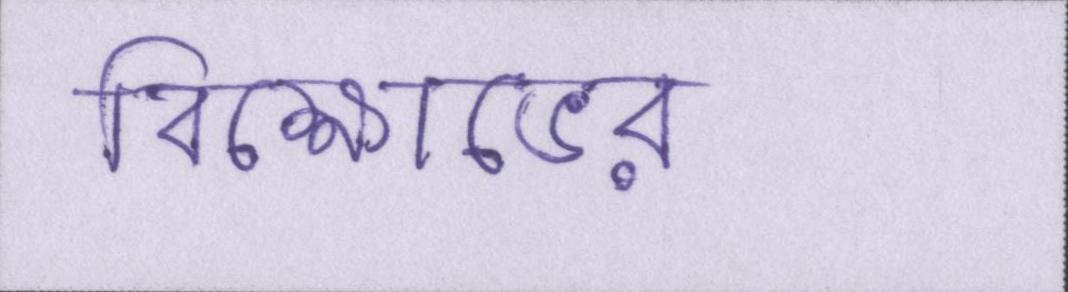 বিক্ষোভের